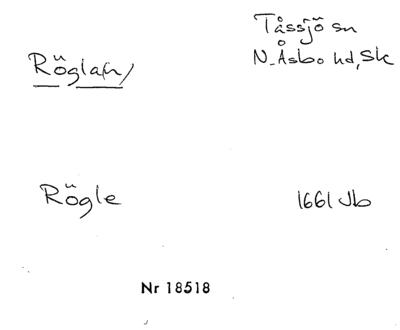 Tåssjö sn
Rögla(n) N. Åsbo hd, Sk
Rögle 1661 Jb
Nr 18518